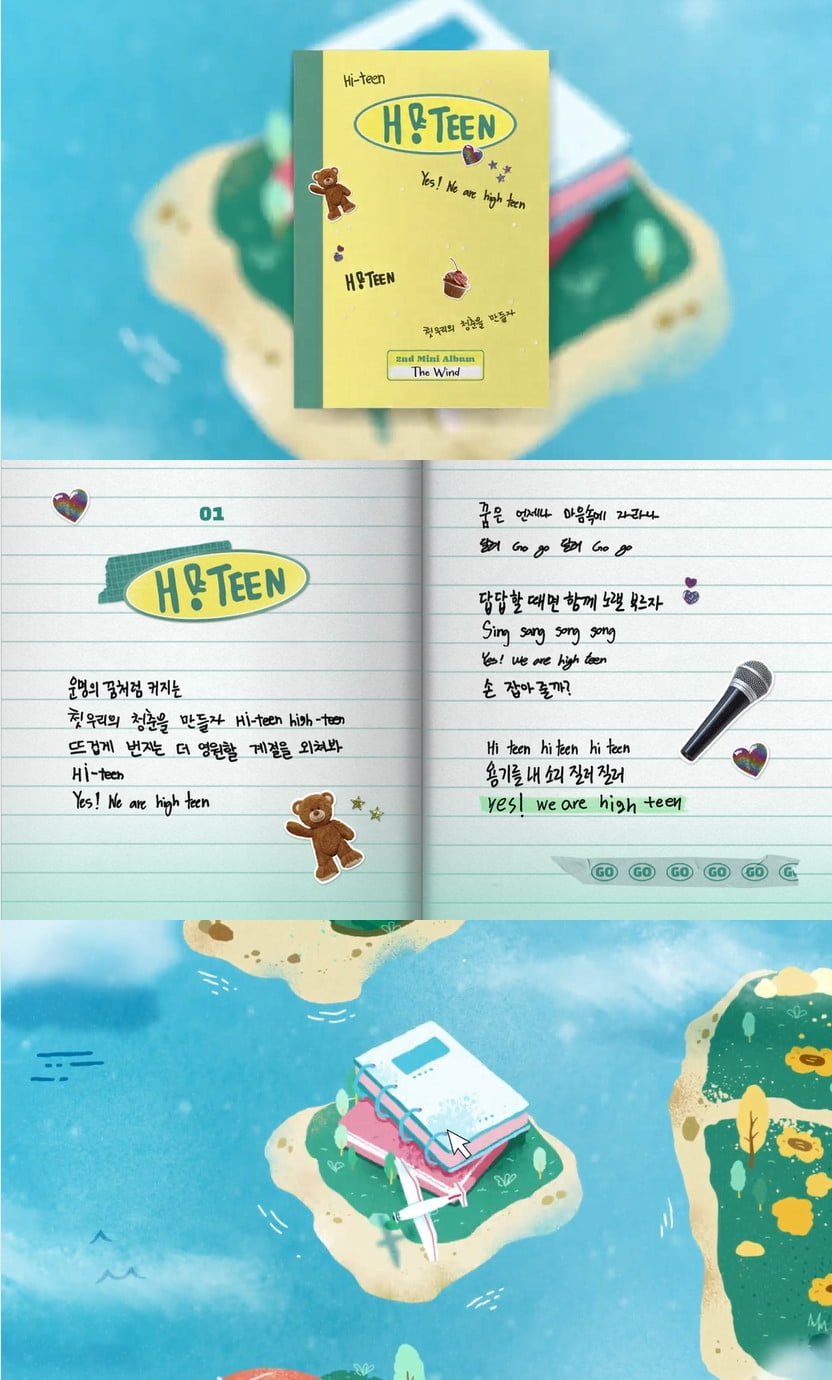 Hi-teen
Hi TEEN
Yes! We are high teen
Hi TEEN
우리의 청춘을 만들자
2nd Mini Album
The Wind
01
Hi TEEN
운명의 꿈처럼 커지는
우리의 청춘을 만들자 Hi-teen high-teen
뜨겁게 번지는 더 영원할 계절을 외쳐봐
Hi-teen
Yes! We are high teen
꿈은 언제나 마음속에 자라나
달려 Go go 달려 Go go
답답할 때면 함께 노랠 부르자
Sing sang song song
Yes! we are high teen
손 잡아 줄까?
Hi teen hi teen hi teen
용기를 내 소리 질러 질러
yes! we are high teen
GO GO GO GO GO